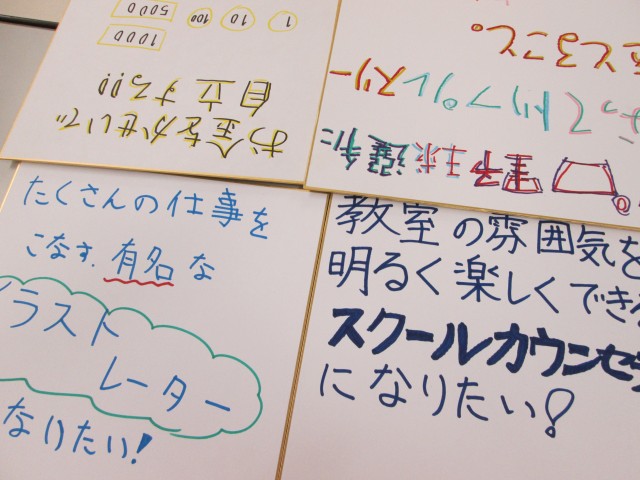 お金をかせいで
自立する!!
1 10 100
1000
5000
野球選手に
ってトリプルスリー
とること。
たくさんの仕事を
こなす、有名な
イラスト
レーター
なりたい!
教室の雰囲気を
明るく楽しくできる
スクールカウンセ
になりたい!